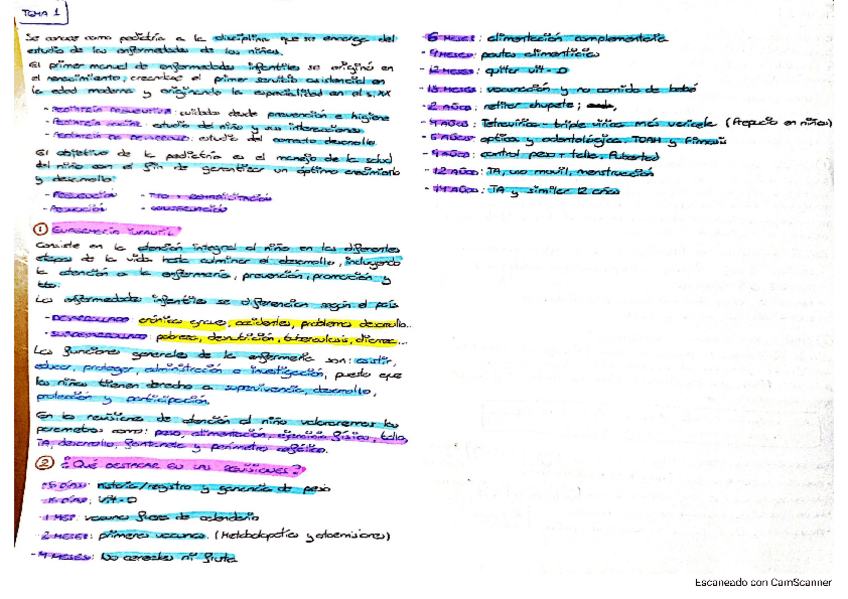 TEMA 1
Se conoce como pediatría a la disciplina que se encarga del
estudio de las enfermedades de los niños.
El primer manual de enfermedades infantiles se originó en
el renacimiento, creandose el primer servicio asistencial en
la edad moderna y originando la especialidad en el s.XX
- PEDIATRÍA PREVENTIVA: cuidado desde prevención e higiene
- PEDIATRÍA SOCIAL: estudio del niño y sus interacciones
- PEDIATRÍA DE : estudio del correcto desarrollo
El objetivo de la pediatría es el manejo de la salud
del niño con el fin de garantizar un óptimo crecimiento
y desarrollo:
- PREVENCIÓN - TTO Y REHABILITACIÓN
-
① ENFERMERÍA INFANTIL
Consiste en la atención integral al niño en las diferentes
etapas de la vida hasta culminar el desarrollo, incluyendo
la atención a la enfermería, prevención, promoción y
tto.
Las enfermedades infantiles se diferencian según el país
- DESARROLLADO: crónicas graves, accidentes, problemas desarrollo...
- SUBDESARROLLADO: pobreza, desnutrición, tuberculosis, diarrea...
Las funciones generales de la enfermería son: asistir,
educar, proteger, administración e investigación, puesto que
los niños tienen derecho a supervivencia, desarrollo,
protección y participación.
En las revisiones de atención al niño valoraremos los
parametros como: peso, alimentación, física, talla,
TA, desarrollo, fontanela y perímetro cefálico.
② ¿QUÉ DESTACAR EN LAS REVISIONES?
DÍAS: historia/registro y ganancia de peso
DÍAS: Vit-D
- 1 MES: vacuna fuera de calendario
- 2 MESES: primeras vacunas. (Metabolopatías y otoemisiones)
- 4 MESES: No cereales ni fruta
- 6 MESES: alimentación complementaria
- 9 MESES: pautas alimenticias
- 12 MESES: quitar vit-D
- MESES: vacunación y no comida de bebé
- 2 AÑOS: retirar chupete;
- 4 AÑOS: Tetravírica - triple vírica más varicela (Prepucio en niños)
- 6 AÑOS: optica y odontológica. TDAH y Fimosis
- 9 AÑOS: control peso + talla. Pubertad
- 12 AÑOS: TA, uso movil, menstruación
- 14 AÑOS: TA y similar 12 años
Escaneado con CamScanner